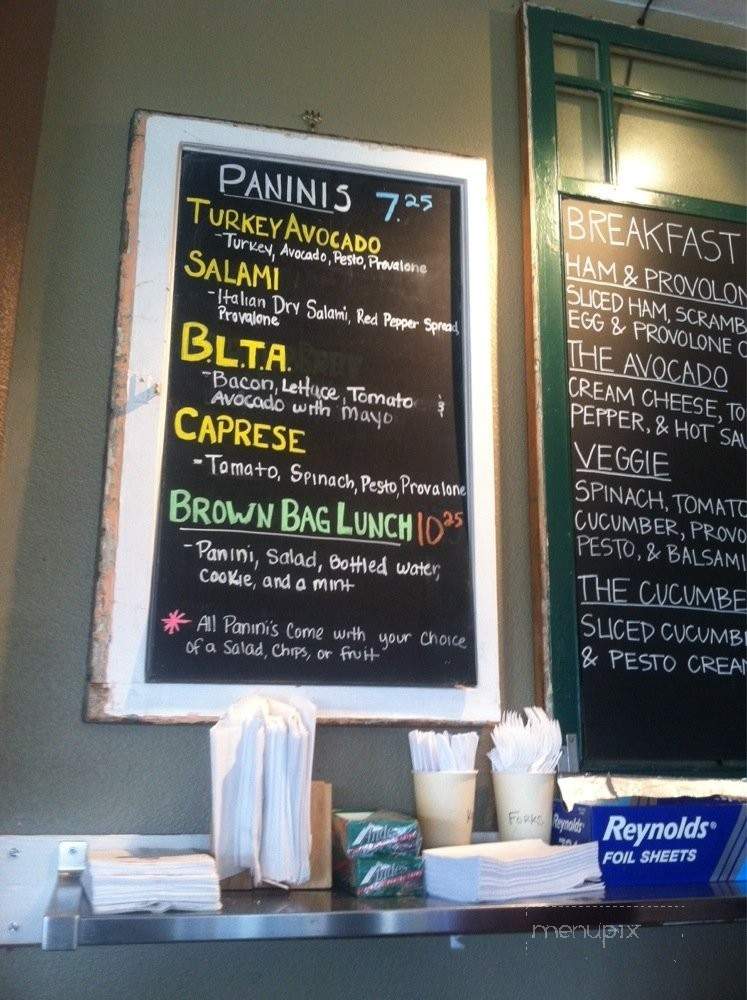 PANINIS 7.25
TURKEY AVOCADO
-Turkey, Avocado, Pesto, Provalone
SALAMI
-Italian Dry Salami, Red Pepper Spread,
Provalone
B.L.T.A.
-Bacon, Lettuce, Tomato &
Avocado with mayo
CAPRESE
-Tomato, Spinach, Pesto, Provalone
BROWN BAG LUNCH 10 25
-Panini, Salad, Bottled water,
cookie, and a mint
* All Panini's come with your choice
of a Salad, Chips, or fruit
BREAKFAST
HAM & PROVOLON
SLICED HAM, SCRAMB
EGG & PROVOLONE
THE AVOCADO
CREAM CHEESE, TO
PEPPER, & HOT SAU
VEGGIE
SPINACH, TOMATO
CUCUMBER, PROVO
PESTO, & BALSAMI
THE CUCUMBE
SLICED CUCUMB
& PESTO CREAM
Andes
Andes
FORKS
Reynolds
Reynolds®
FOIL SHEETS
menupix